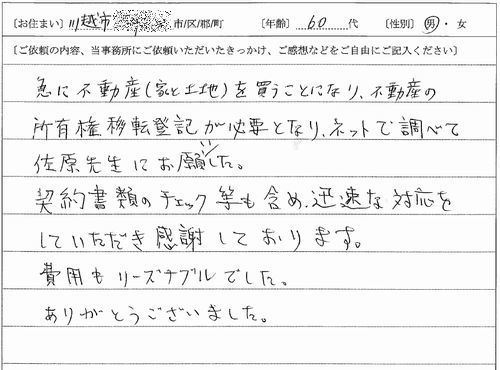 〔お住まい〕 川越市 市/区/郡/町 〔年齢〕 60 代 〔性別〕 男・女
〔ご依頼の内容、当事務所にご依頼いただいたきっかけ、ご感想などをご自由にご記入ください〕
急に不動産(家と土地)を買うことになり、不動産の
所有権移転登記が必要となり、ネットで調べて
佐原先生にお願いした。
契約書類のチェック等も含め、迅速な対応を
していただき感謝しております。
費用もリーズナブルでした。
ありがとうございました。